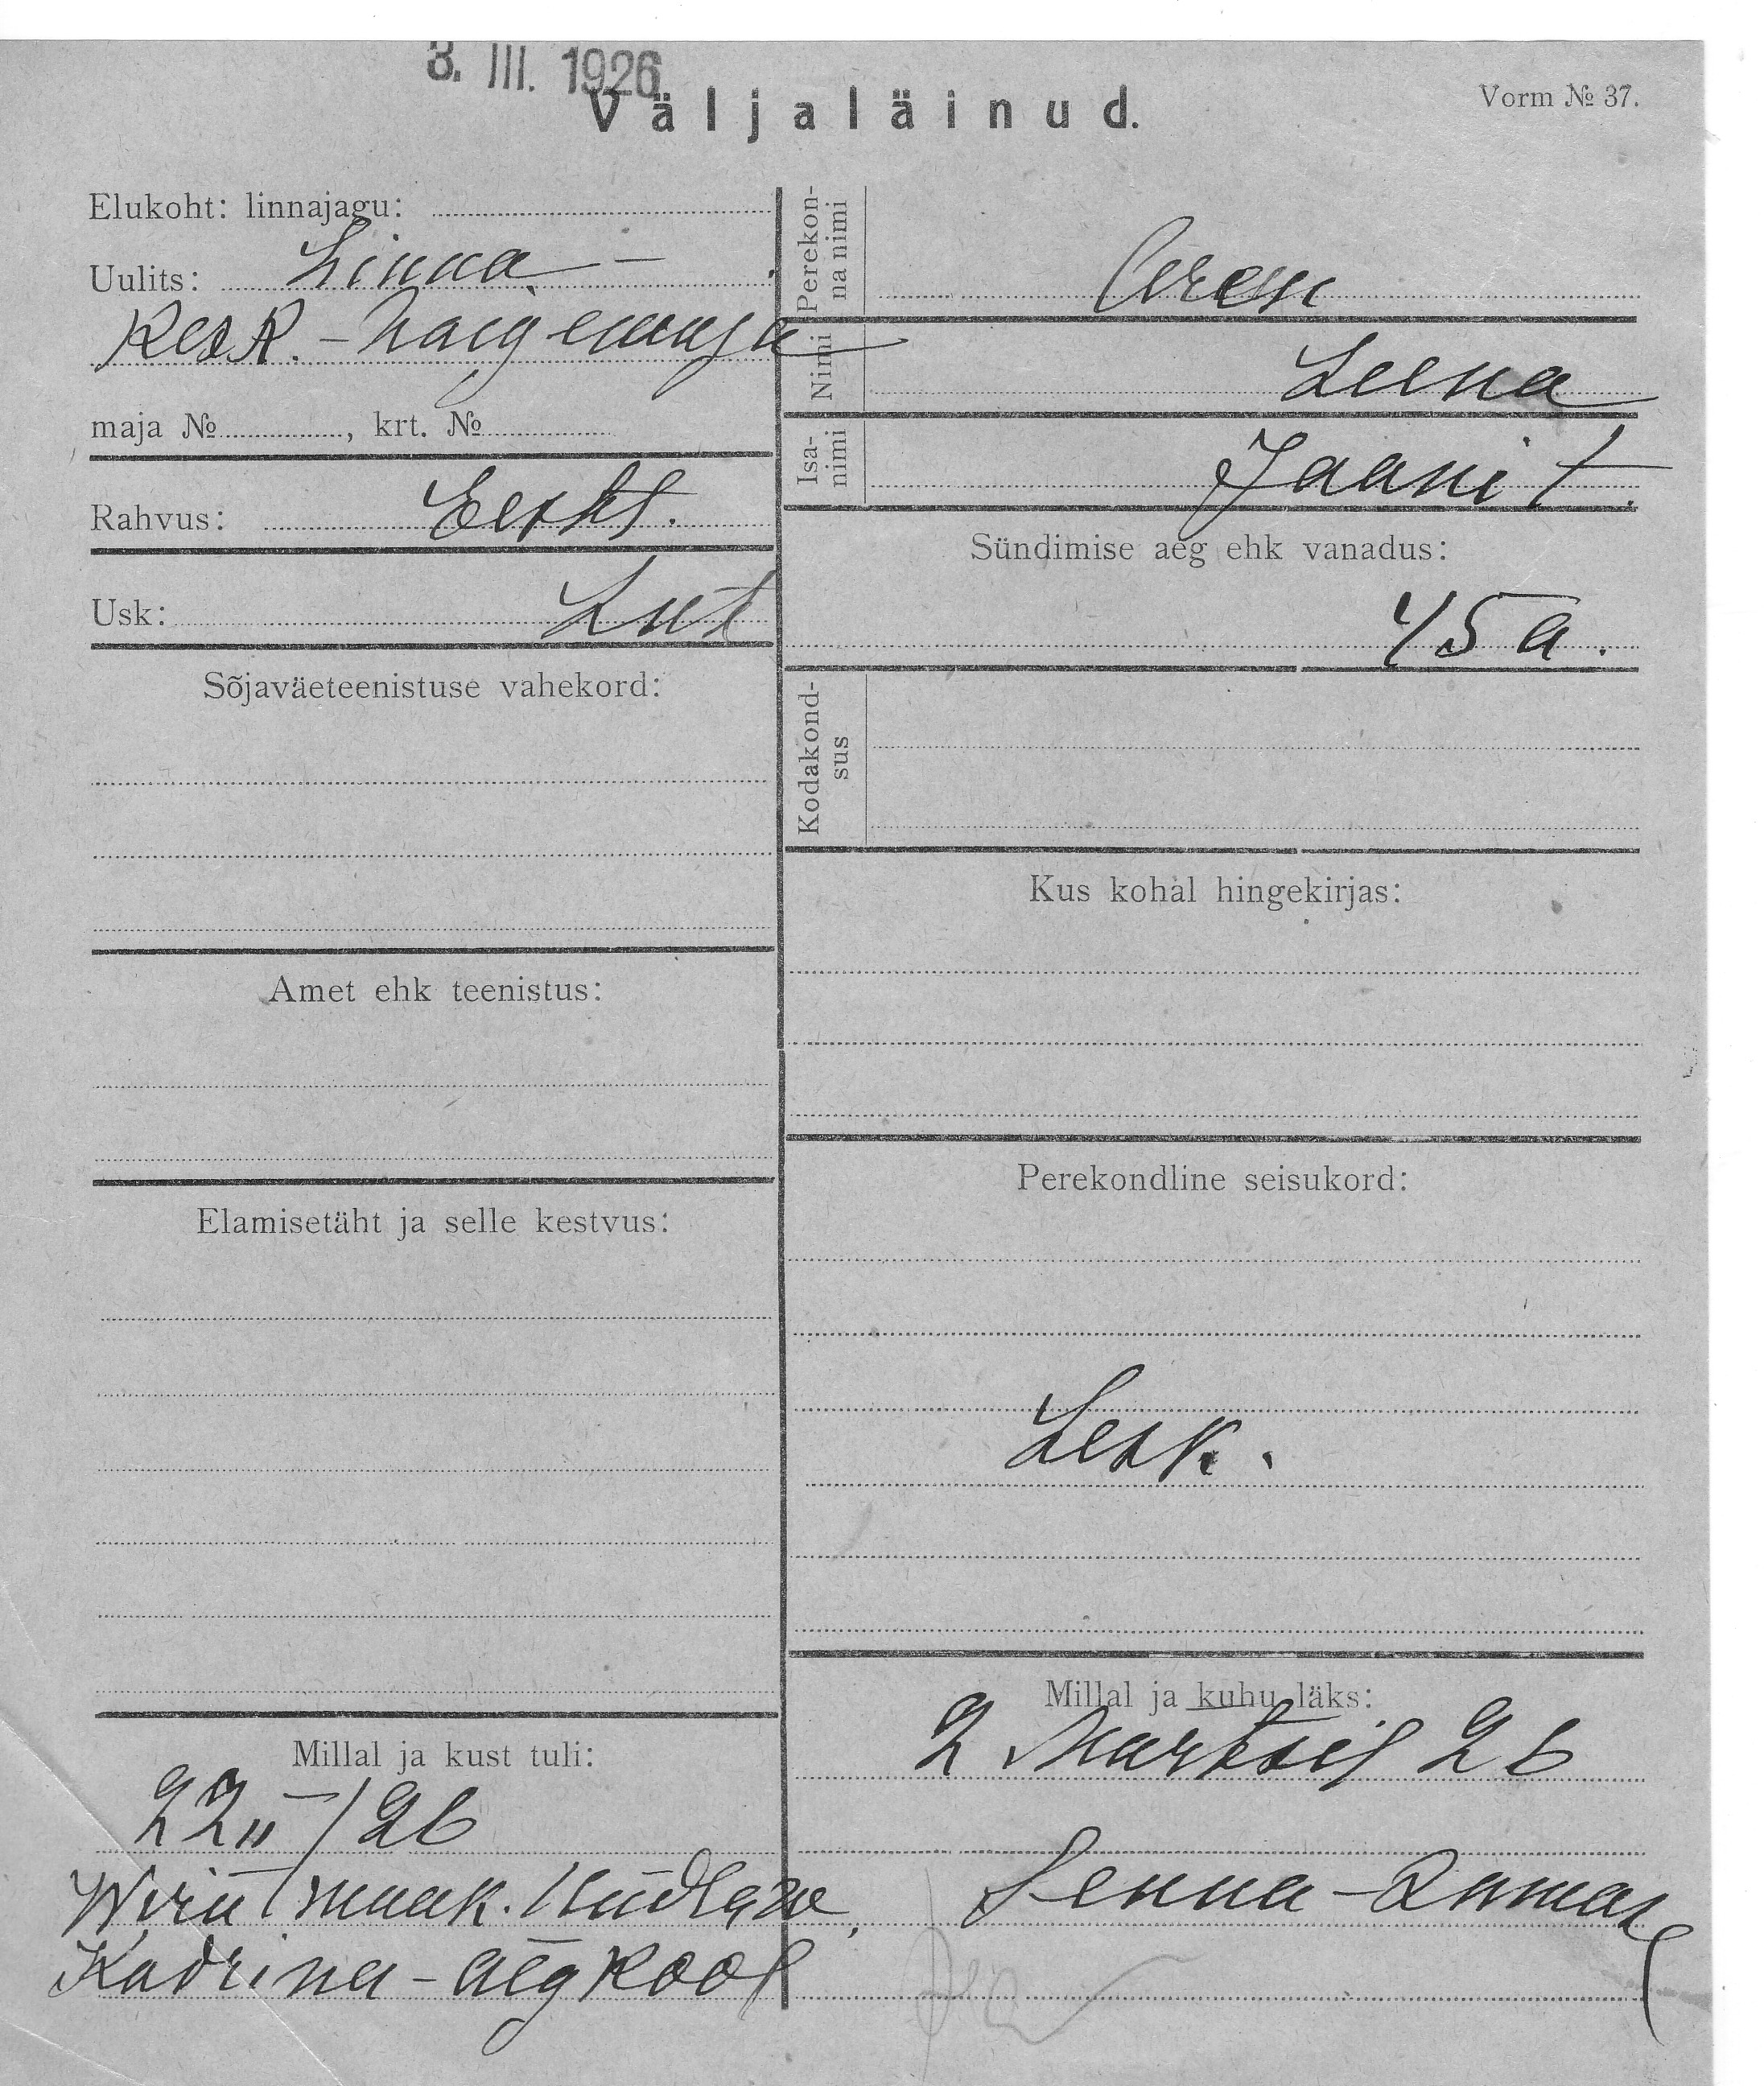 3. III. 1926
Väljaläinud.
Vorm № 37.
Elukoht: linnajagu:
Uulits: Linna –
Kesk.-haigemaja
maja № , krt. №
Rahvus: Eestl.
Usk: Lut
Sõjaväeteenistuse vahekord:
Amet ehk teenistus:
Elamisetäht ja selle kestvus:
Millal ja kust tuli:
22 II / 26
Wiru maak.
Kadrina - algkool
Perekon-
na nimi
Aren
Nimi Leena
Isa-
nimi
Jaani t.
Sündimise aeg ehk vanadus:
45 a.
Kodakond-
sus
Kus kohal hingekirjas:
Perekondline seisukord:
Lesk.
Millal ja kuhu läks:
2 Martsil 26
Senna-Ramas